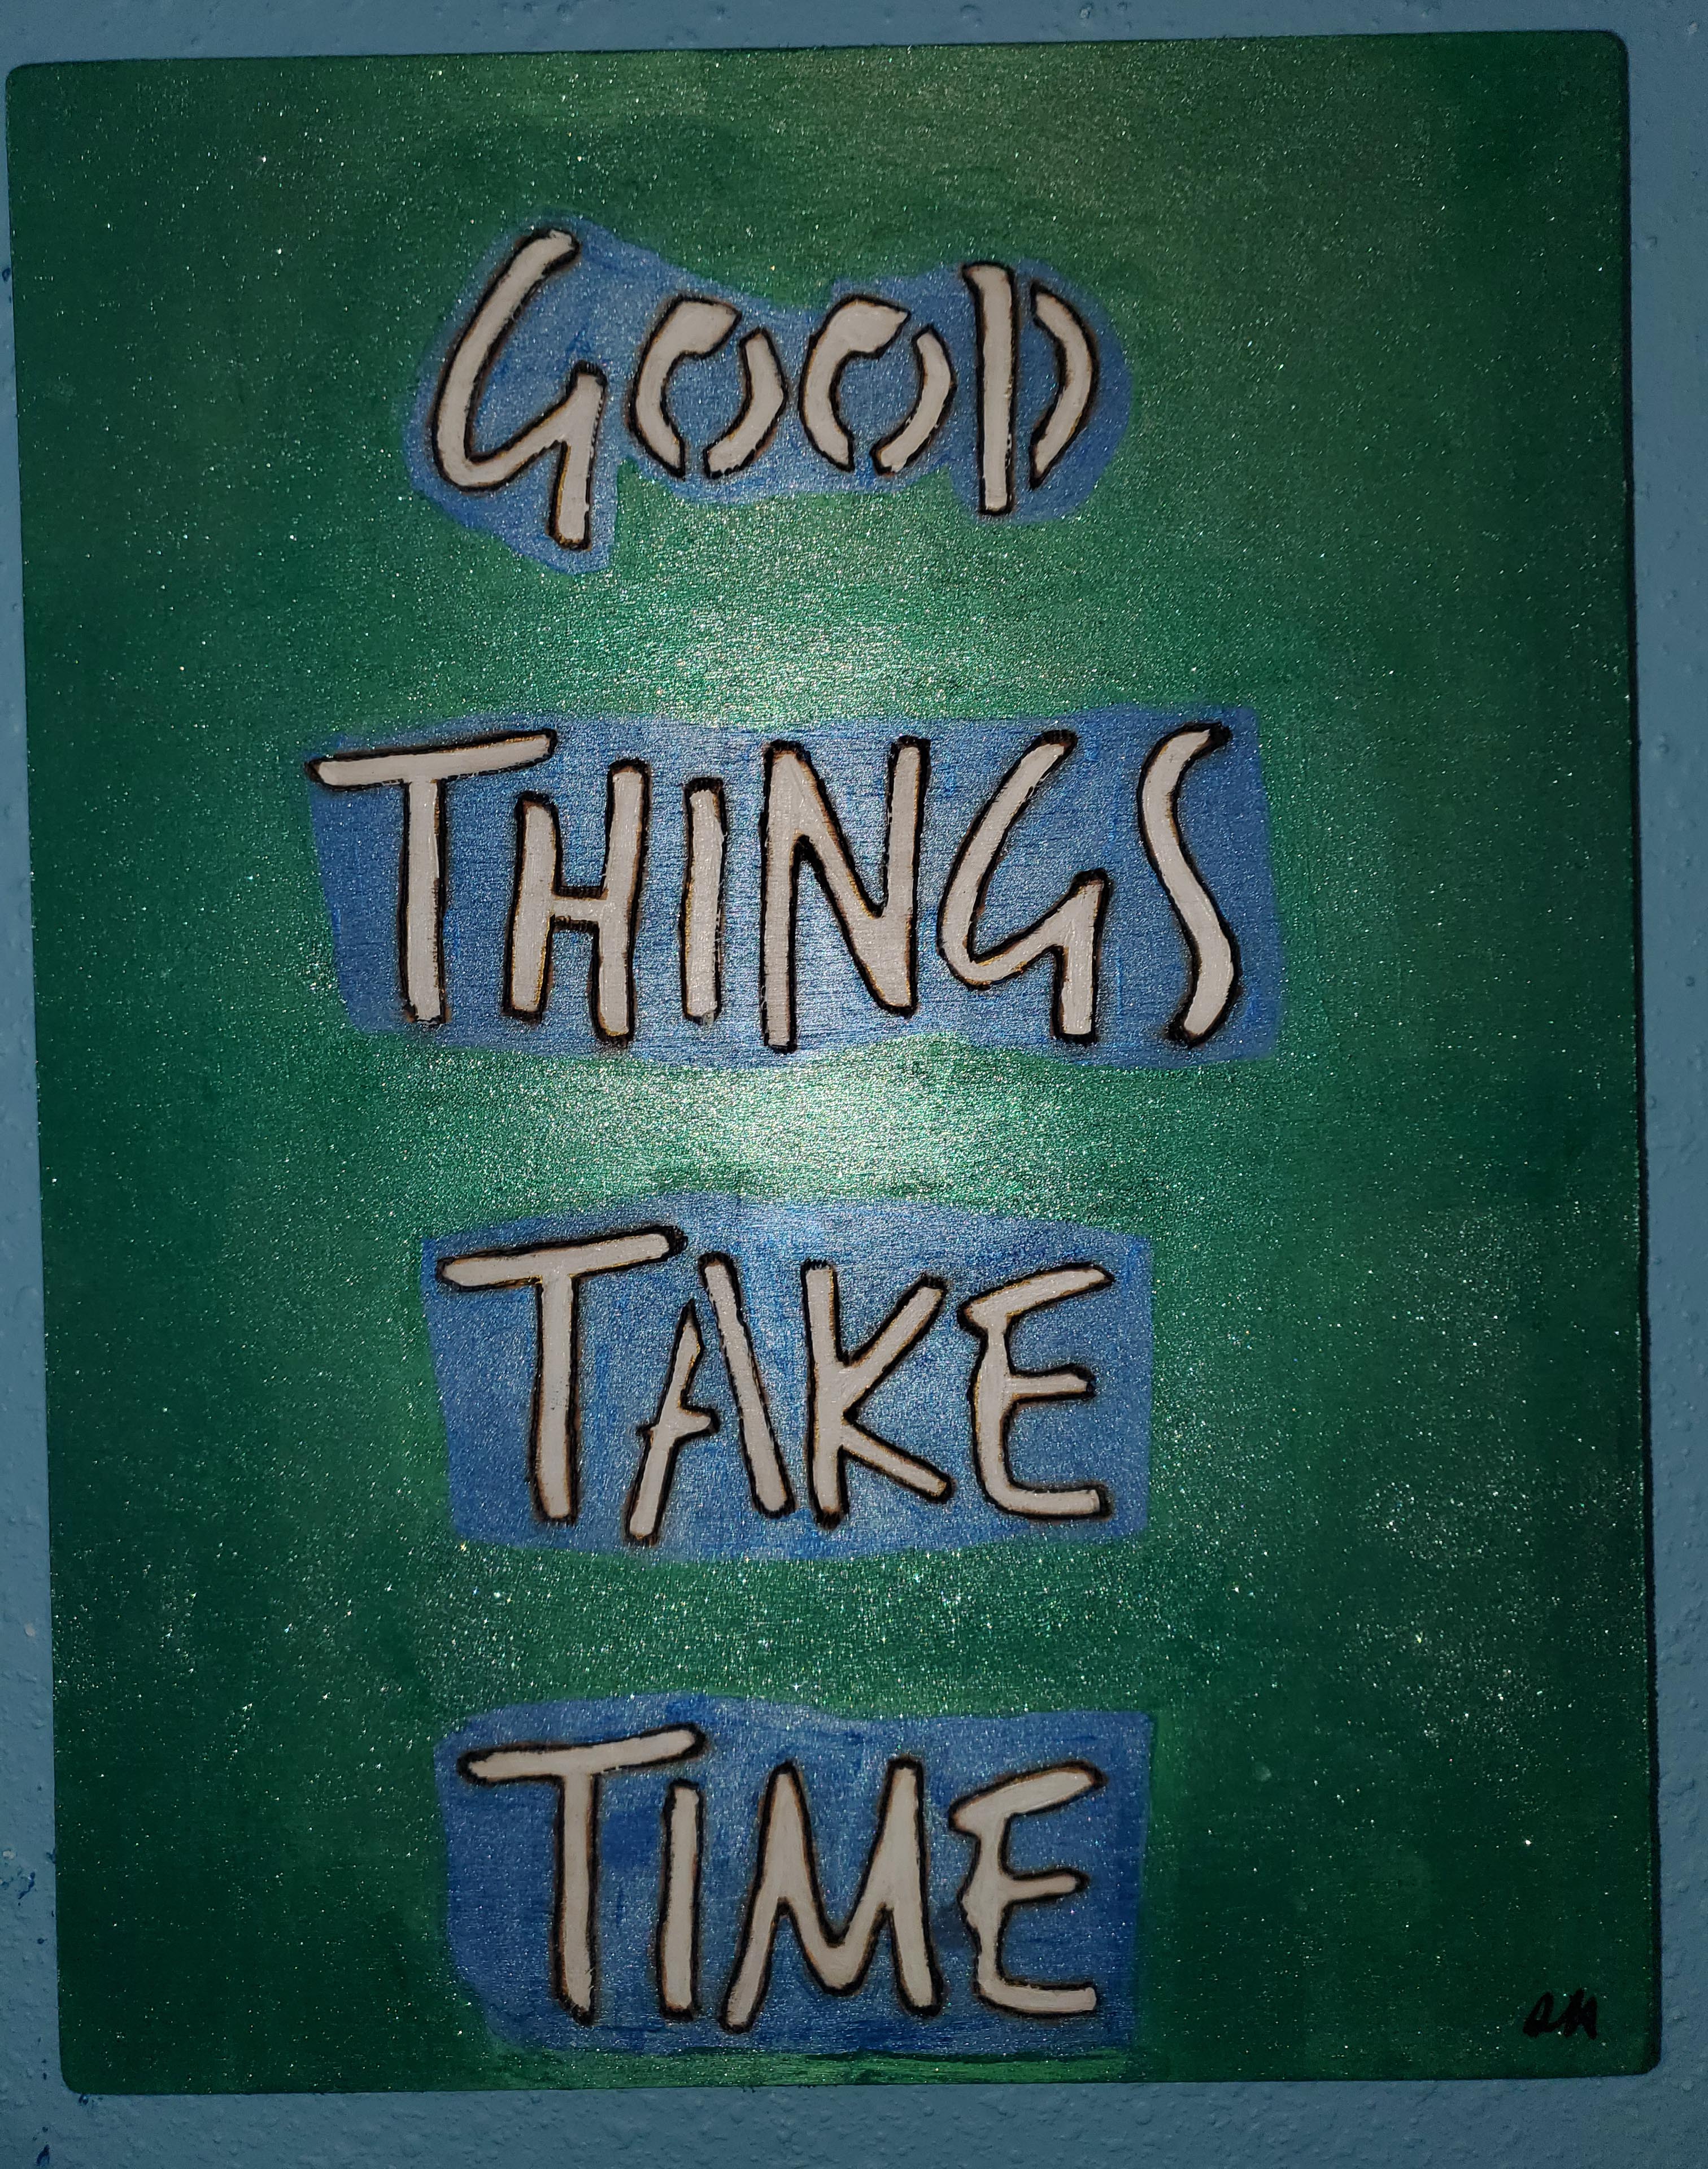 GOOD
THINGS
TAKE
TIME